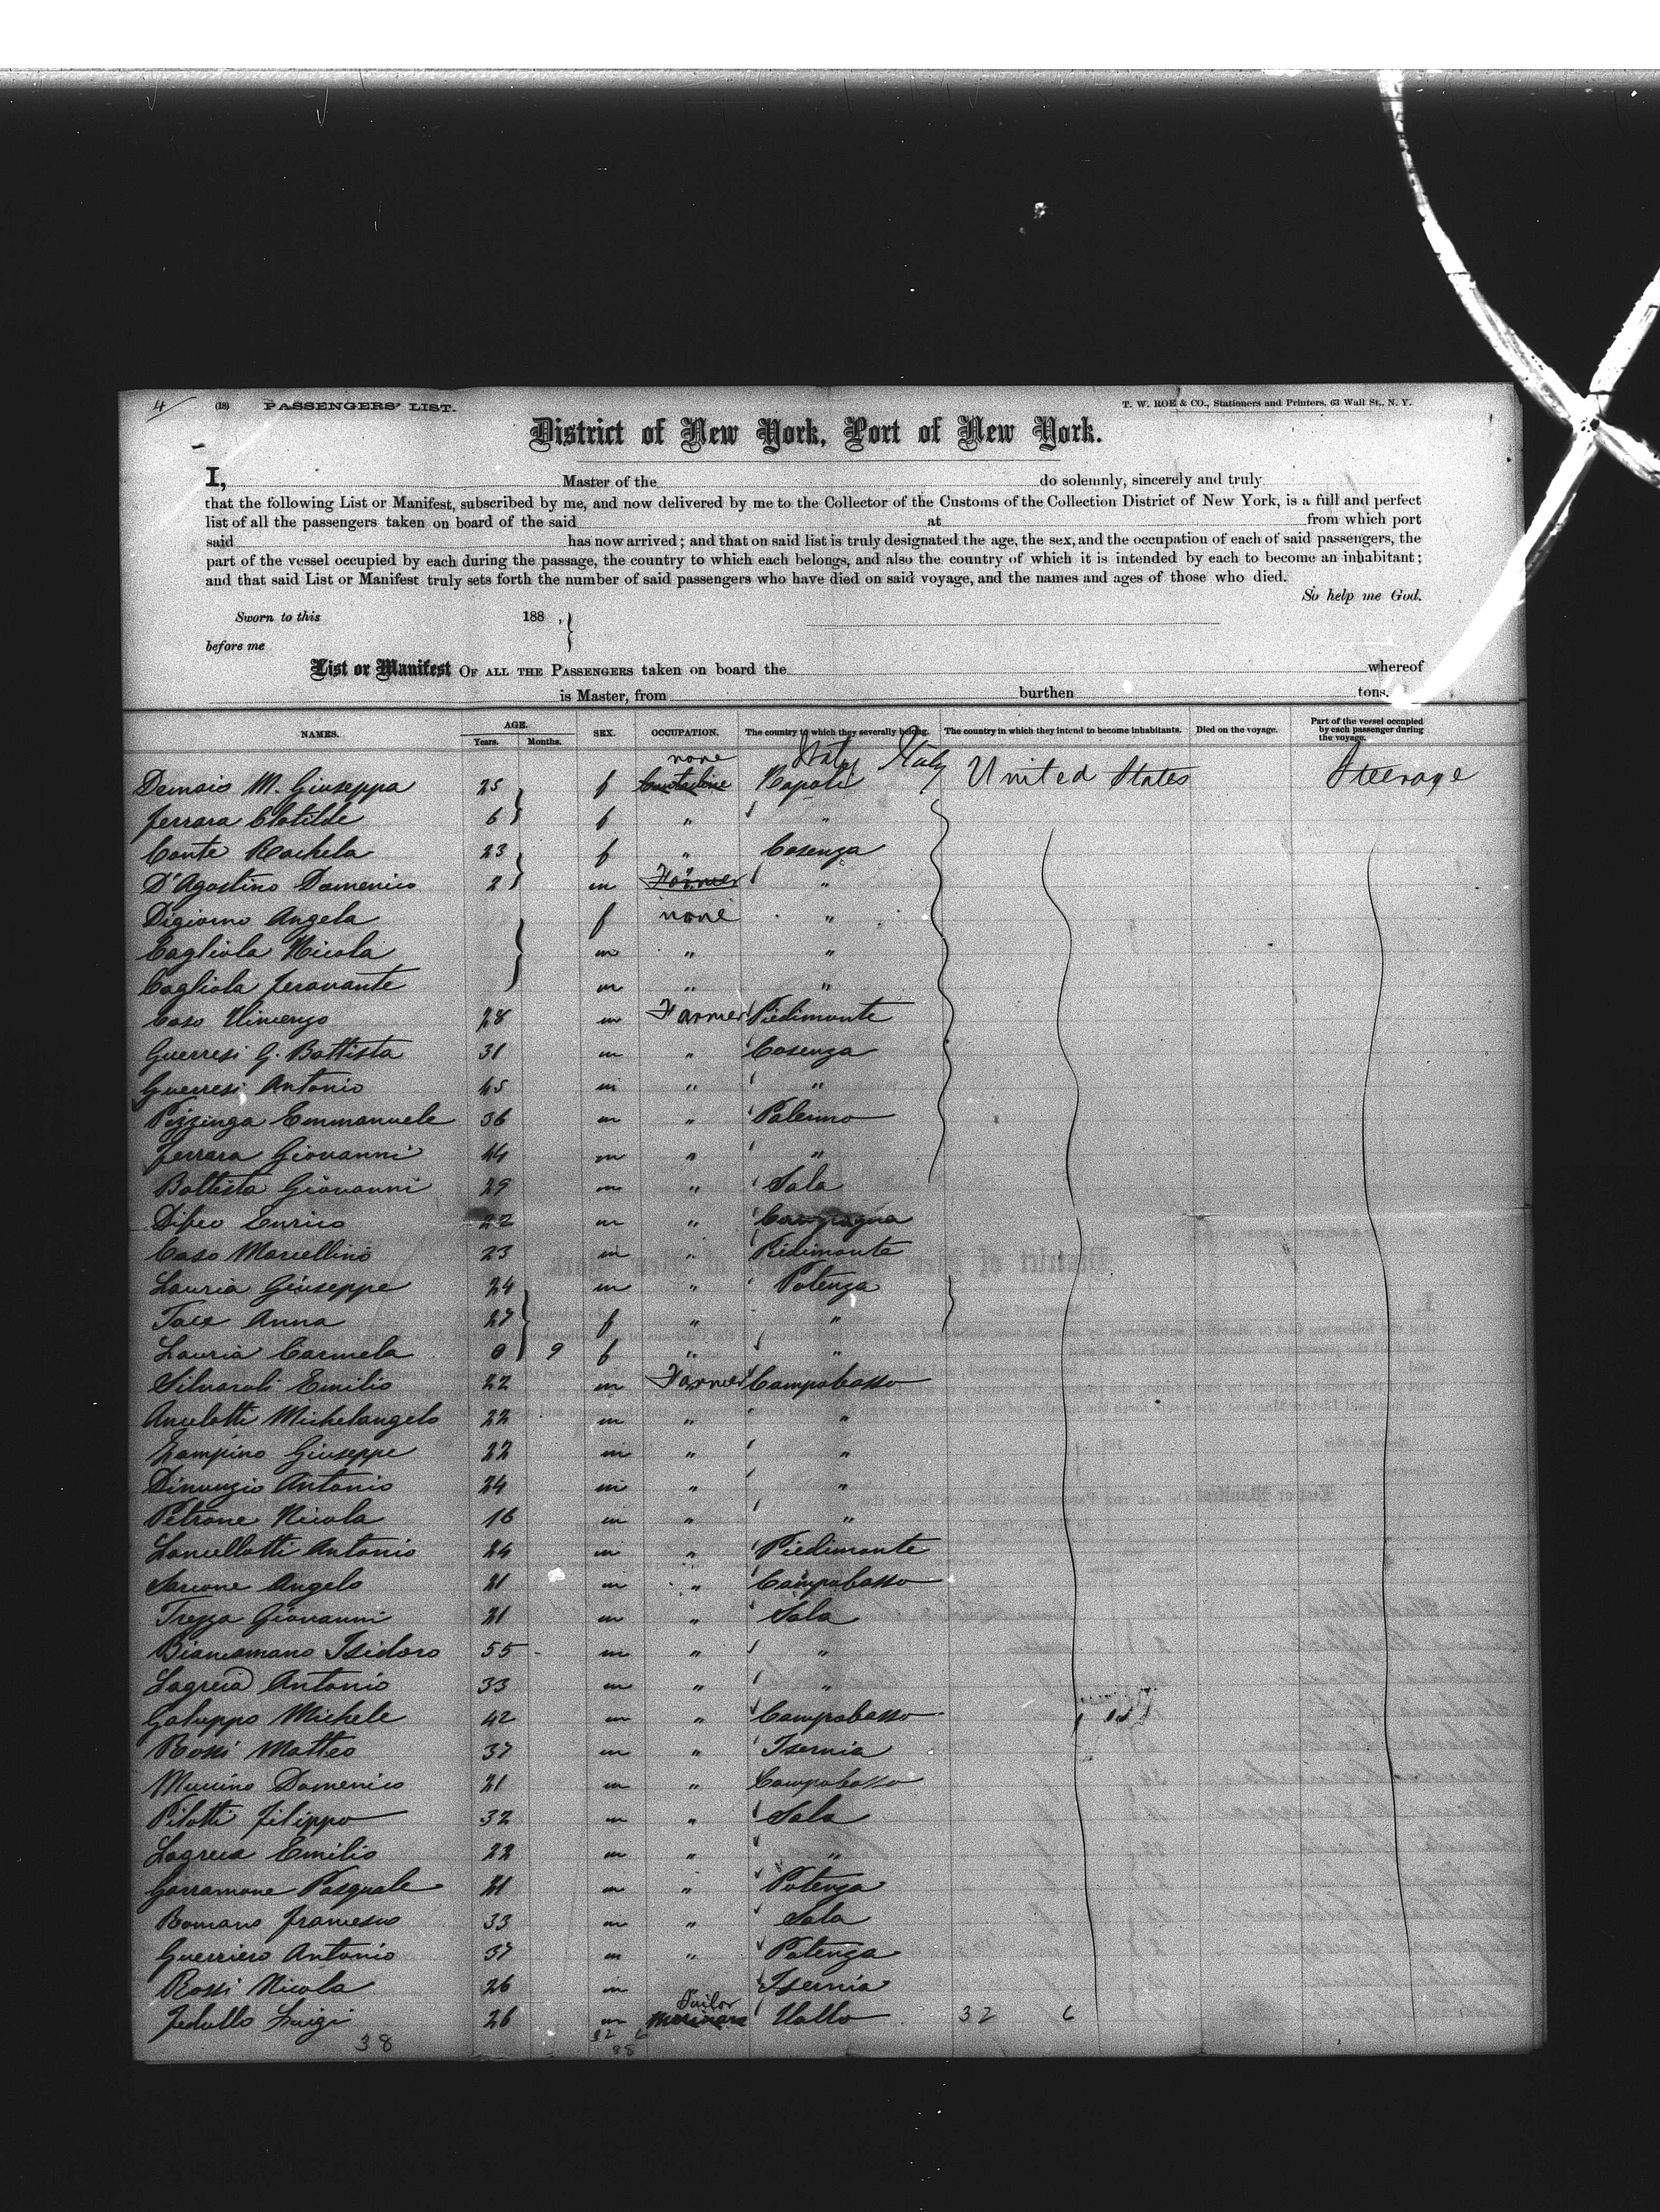 4 (18) PASSENGERS' LIST. T. W. ROE & CO., Stationers and Printers, 63 Wall St., N. Y.
District of New York, Port of New York.
I, Master of the do solemnly, sincerely and truly
that the following List or Manifest, subscribed by me, and now delivered by me to the Collector of the Customs of the Collection District of New York, is a full and perfect
list of all the passengers taken on board of the said at from which port
said has now arrived; and that on said list is truly designated the age, the sex, and the occupation of each of said passengers, the
part of the vessel occupied by each during the passage, the country to which each belongs, and also the country of which it is intended by each to become an inhabitant;
and that said List or Manifest truly sets forth the number of said passengers who have died on said voyage, and the names and ages of those who died.
So help me God.
Sworn to this 188 ,
before me
List or Manifest OF ALL THE PASSENGERS taken on board the whereof
is Master, from burthen tons.
NAMES. AGE. Years. Months. SEX. OCCUPATION. The country to which they severally belong. The country in which they intend to become inhabitants. Died on the voyage. Part of the vessel occupied by each passenger during the voyage.
none Italy Italy
M. Giuseppa 25 f Napoli United States Steerage
Ferrara Clotilde 6 f " "
Conte Rachela 23 f " Cosenza
D'Agostino Domenico 2 m Farmer "
Digiorno Angela f none "
Cagliola Nicola m " "
Cagliola m " "
Caso Vincenzo 28 m Farmer Piedimonte
Guerresi G. Battista 31 m " Cosenza
Guerresi Antonio 45 m " "
Pizzinga Emmanuele 36 m " Palermo
Ferrara Giovanni 44 m " "
Battista Giovanni 29 m " Sala
Enrico 22 m " Campagna
Caso Marcellino 23 m " Piedimonte
Lauria Giuseppe 24 m " Potenza
Anna 27 f " "
Lauria Carmela 0 9 f " "
Silvaroli Emilio 22 m Farmer Campobasso
Ancelotti Michelangelo 22 m " "
Zampino Giuseppe 22 m " "
Dinunzio Antonio 24 m " "
Petrone Nicola 16 m " "
Lancellotti Antonio 24 m " Piedimonte
Sarcone Angelo 21 m " Campobasso
Trezza Giovanni 21 m " Sala
Biancamano Isidoro 55 m " "
Lagreca Antonio 33 m " "
Galuppo Michele 42 m " Campobasso
Rossi Matteo 37 m " Isernia
Muccino Domenico 21 m " Campobasso
Pilotti Filippo 32 m " Sala
Lagreca Emilio 22 m " "
Garramone Pasquale 21 m " Potenza
Romano Francesco 33 m " Sala
Guerriero Antonio 37 m " Potenza
Rossi Nicola 26 m " Isernia
Sailor
Fedullo Luigi 26 m Vallo 32 6
38 32 6